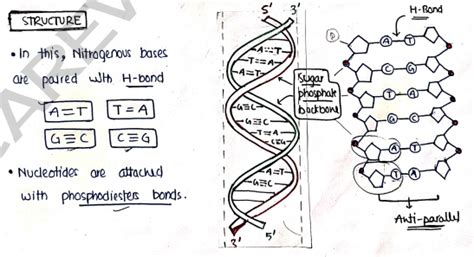 STRUCTURE
• In this, Nitrogenous bases
are paired with H-bond
A=T T=A
G≡C C≡G
• Nucleotides are attached
with phosphodiesters bonds.
5' 3'
A=T
T=A
A=T
G≡C
G≡C
T=A
C≡G
A=T
G≡C
3' 5'
Sugar
phosphate
backbone
H-Bond
A T
C G
T A
G C
A T
T A
Anti-parallel